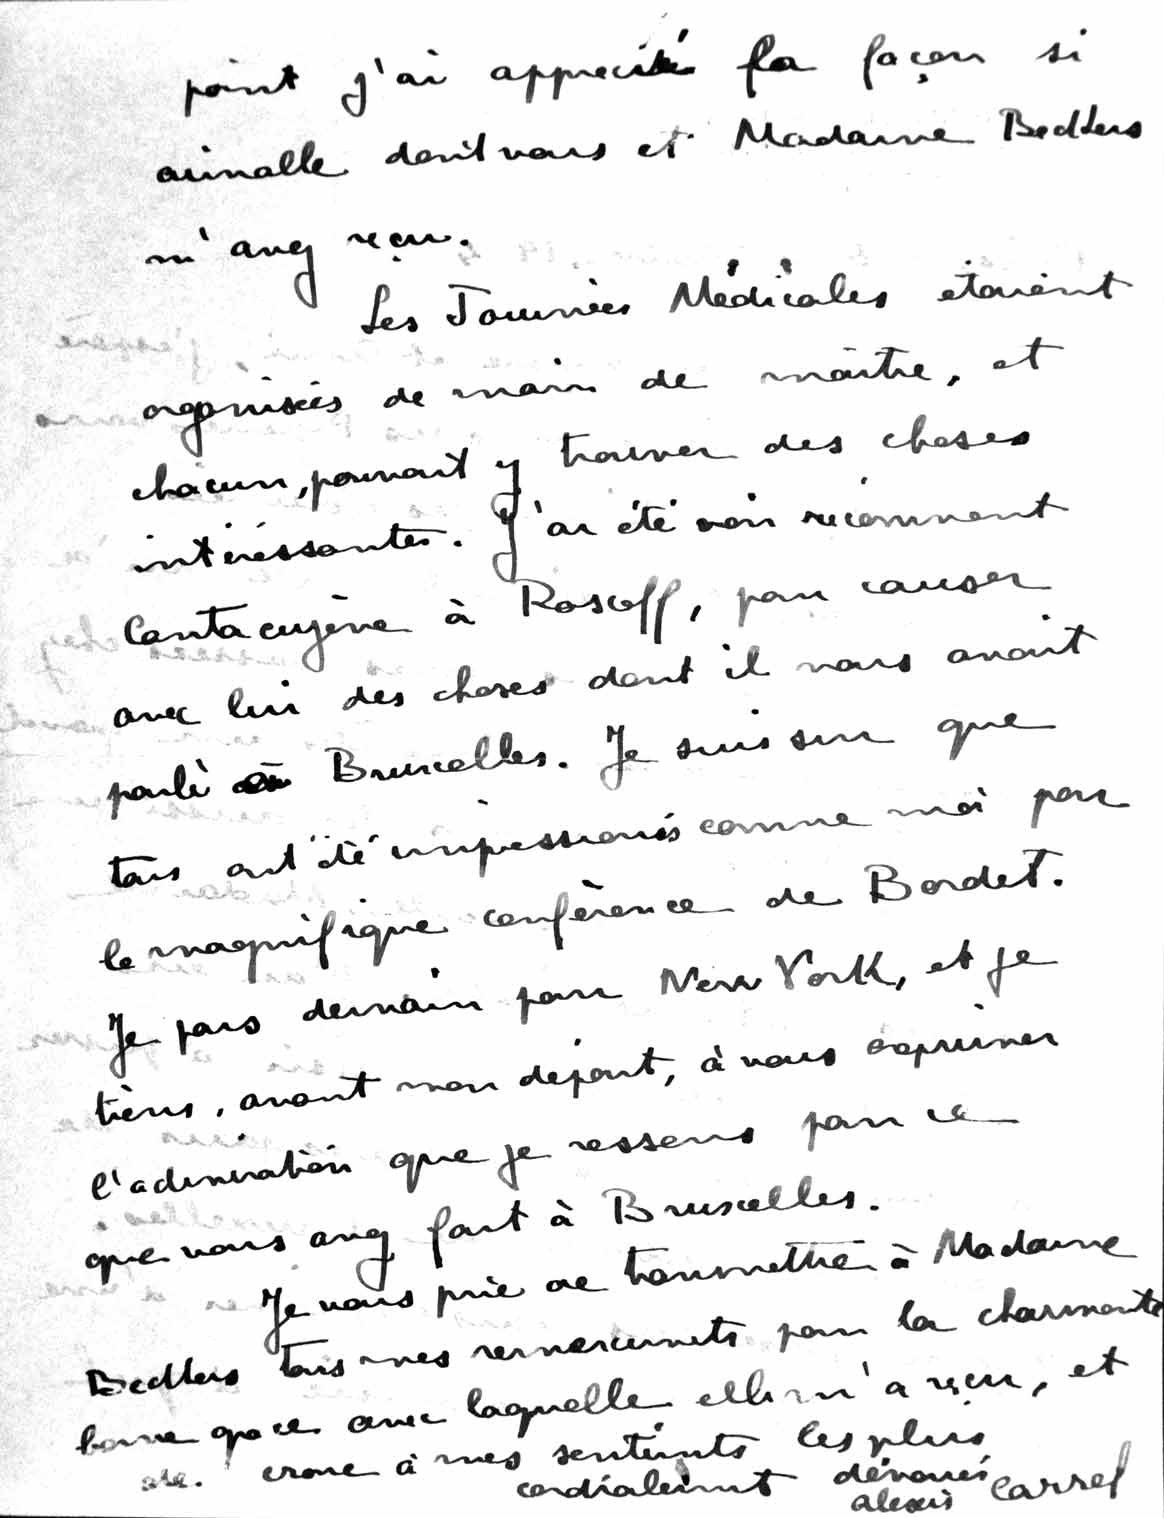 point j'ai apprecié la façon si
aimable dont vous et Madame Beckers
m'avez reçu.
Les Journées Médicales étaient
organisées de main de maître, et
chacun, pouvait y trouver des choses
intéressantes. J'ai été voir récemment
Cantacuzène à Roscoff, pour causer
avec lui des choses dont il nous avait
parlé à Bruxelles. Je suis sur que
tous ont été impressionnés comme moi par
la magnifique conférence de Bordet.
Je pars demain pour New York, et je
tiens, avant mon départ, à vous exprimer
l'admiration que je ressens pour ce
que vous avez fait à Bruxelles.
Je vous prie de transmettre à Madame
Beckers tous mes remerciements pour la charmante
bonne grace avec laquelle elle m'a reçu, et
de croire à mes sentiments les plus
cordialement dévoués
Alexis Carrel